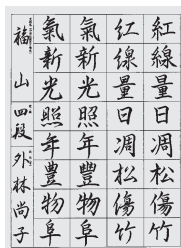 紅線量日凋松傷竹
紅線量日凋松傷竹
氣新光照年豐物阜
氣新光照年豊物阜
福山 四段 外林尚子